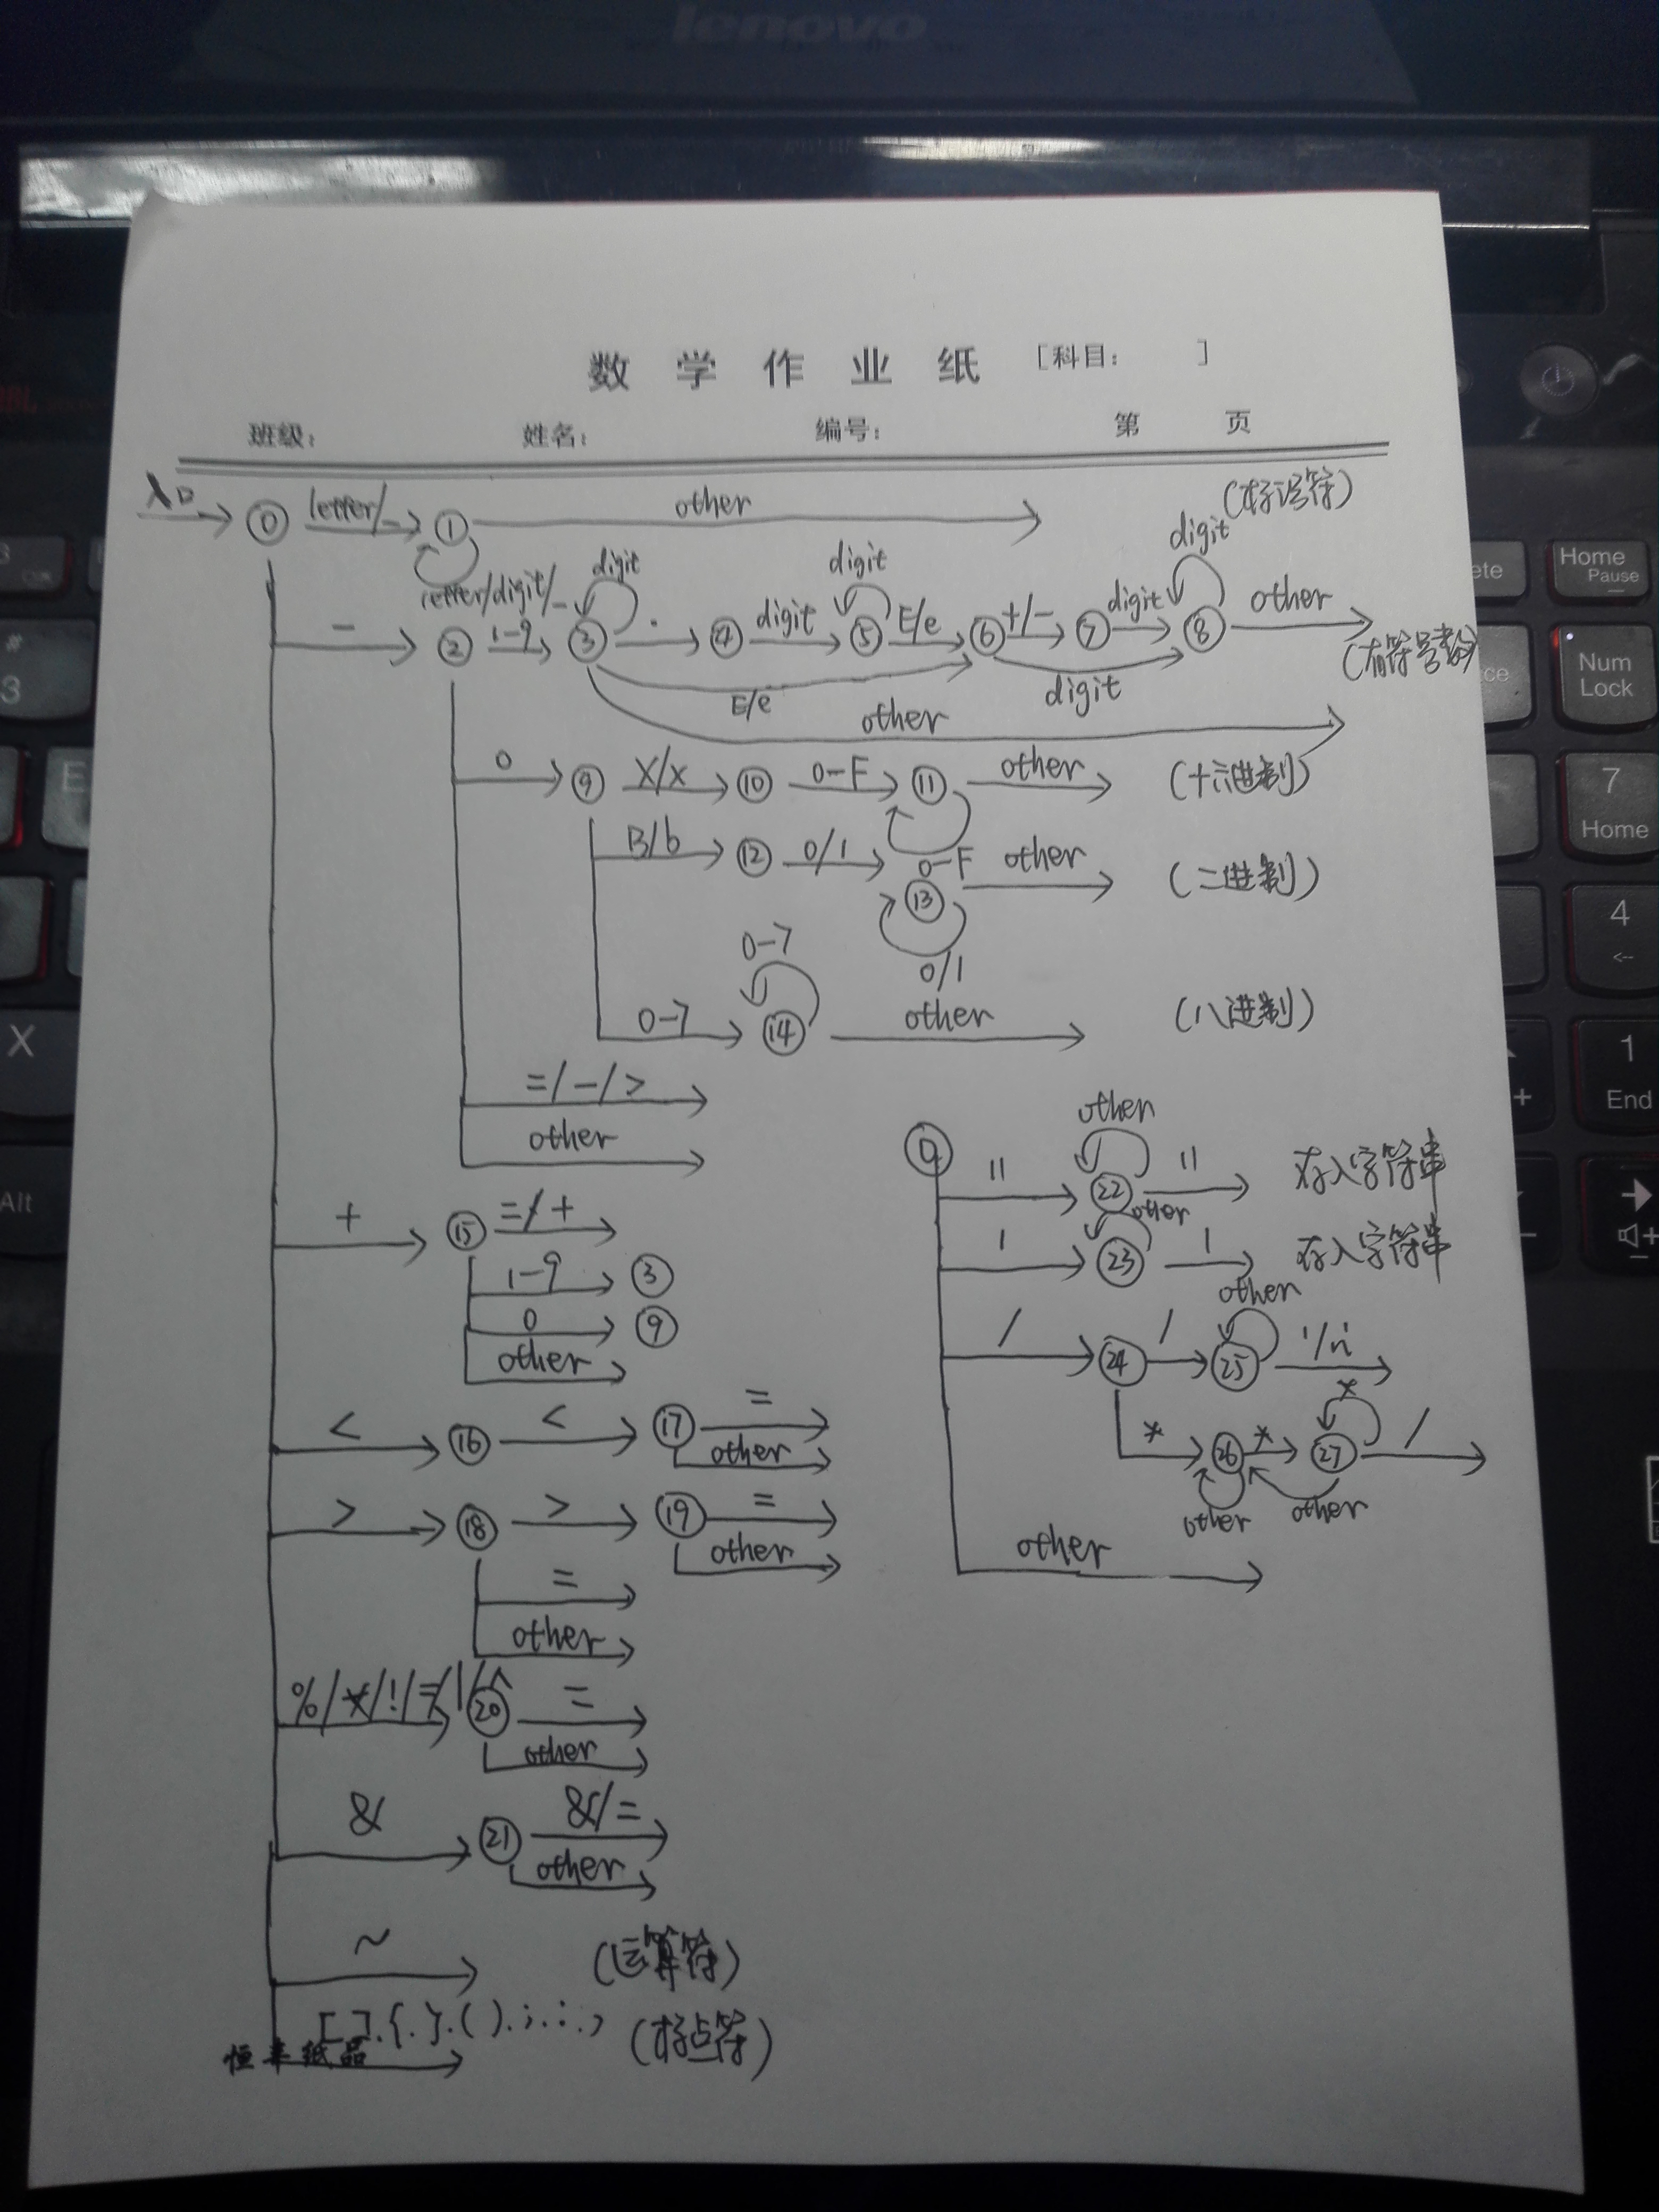 lenovo
数学作业纸 [科目: ]
班级: 姓名: 编号: 第 页
入口 0 letter/_ 1 other (标识符)
letter/digit/_
digit digit digit
- 2 1-9 3 . 4 digit 5 E/e 6 +/- 7 digit 8 other
(有符号数)
E/e digit
other
0 9 X/x 10 0-F 11 other (十六进制)
0-F
B/b 12 0/1 13 other (二进制)
0/1
0-7
0-7 14 other (八进制)
=/-/>
other
+ 15 =/+
1-9 3
0 9
other
< 16 < 17 =
other
> 18 > 19 =
other
=
other
%/*/!/=/|/^ 20 =
other
& 21 &/=
other
~ (运算符)
[ ].{.}.( ).;.:., (标点符)
恒丰纸品
0
other
" 22 " 存入字符串
other
' 23 ' 存入字符串
other
/ 24 / 25 '\n'
*
* 26 * 27 /
other other
other
Home
Pause
Num
Lock
7
Home
4
<--
1
End
#
3
E
X
Alt